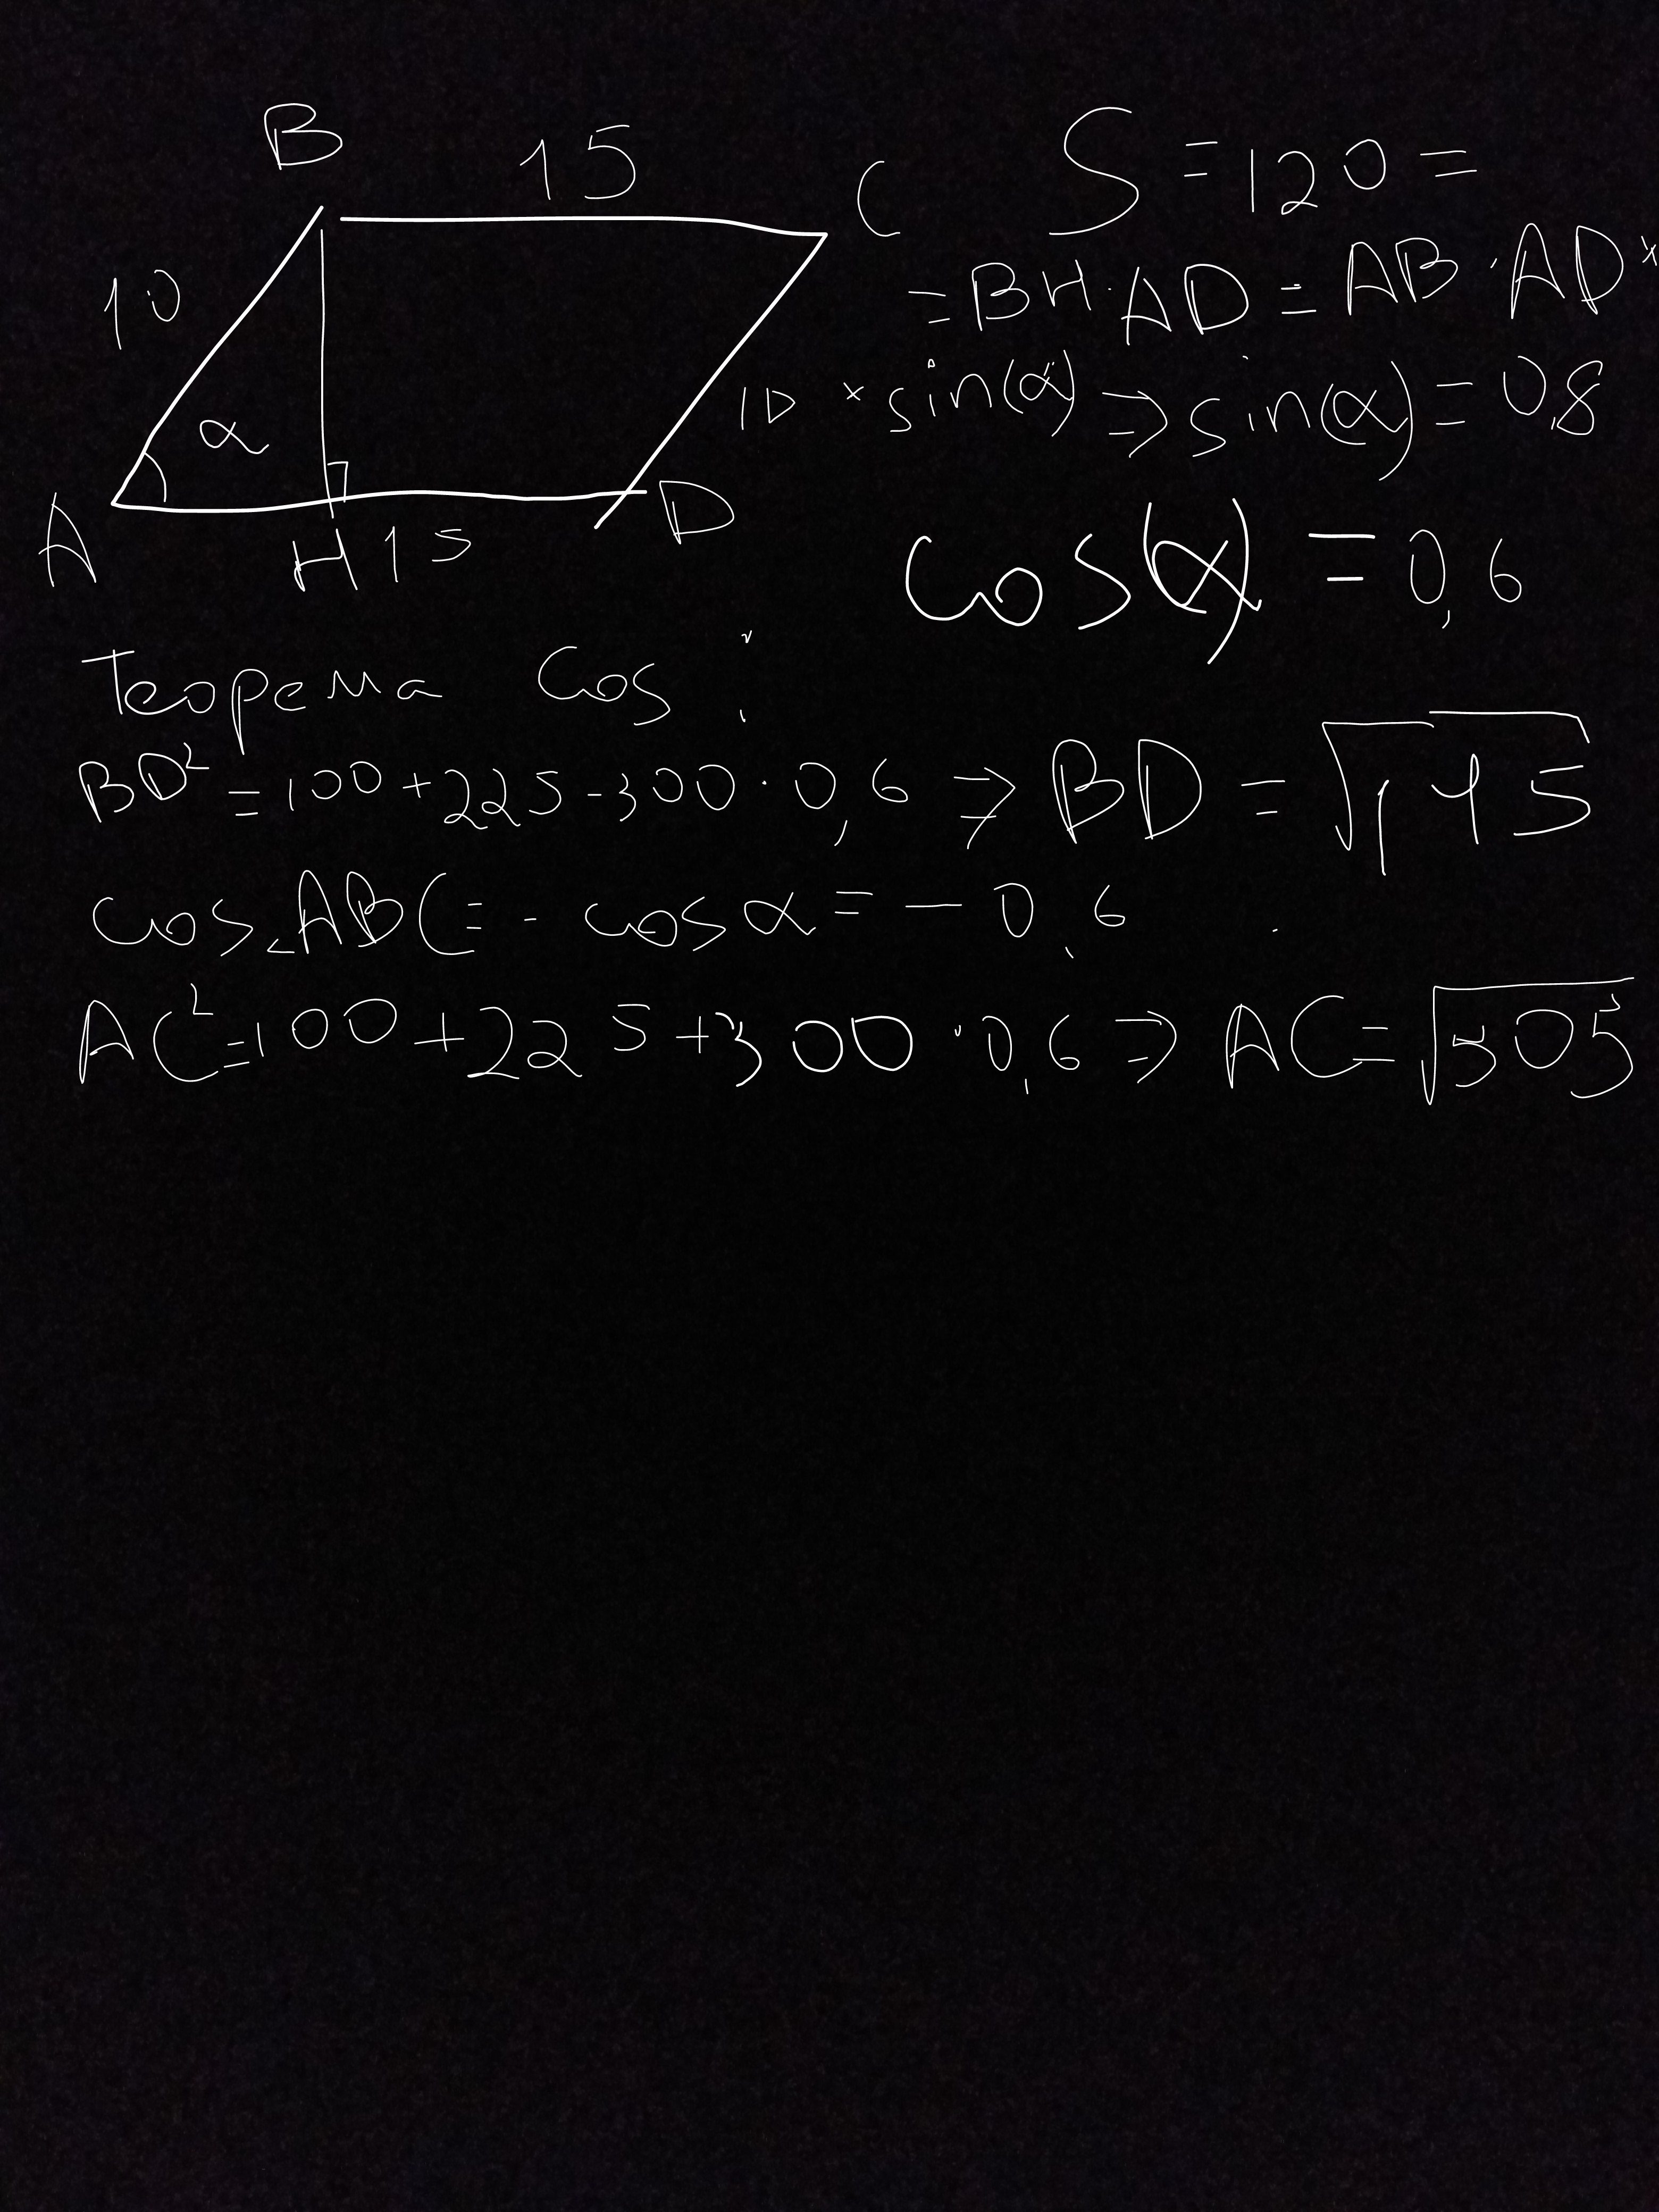 B 15 C
10 α 10
A H 15 D
S = 120 =
= BH · AD = AB · AD ×
× sin(α) => sin(α) = 0,8
cos(α) = 0,6
Теорема cos :
BD² = 100 + 225 - 300 · 0,6 => BD = √145
cos∠ABC = - cos α = - 0,6
AC² = 100 + 225 + 300 · 0,6 => AC = √505